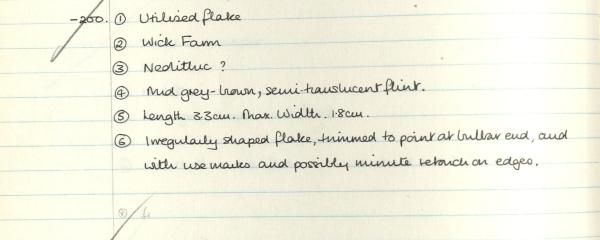 -200. ① Utilised flake
② Wick Farm
③ Neolithic ?
④ Mid grey-brown, semi-translucent flint.
⑤ Length 3.3cm. Max. Width. 1.8cm.
⑥ Irregularly shaped flake, trimmed to point at bulbar end, and
with use marks and possibly minute retouch on edges.